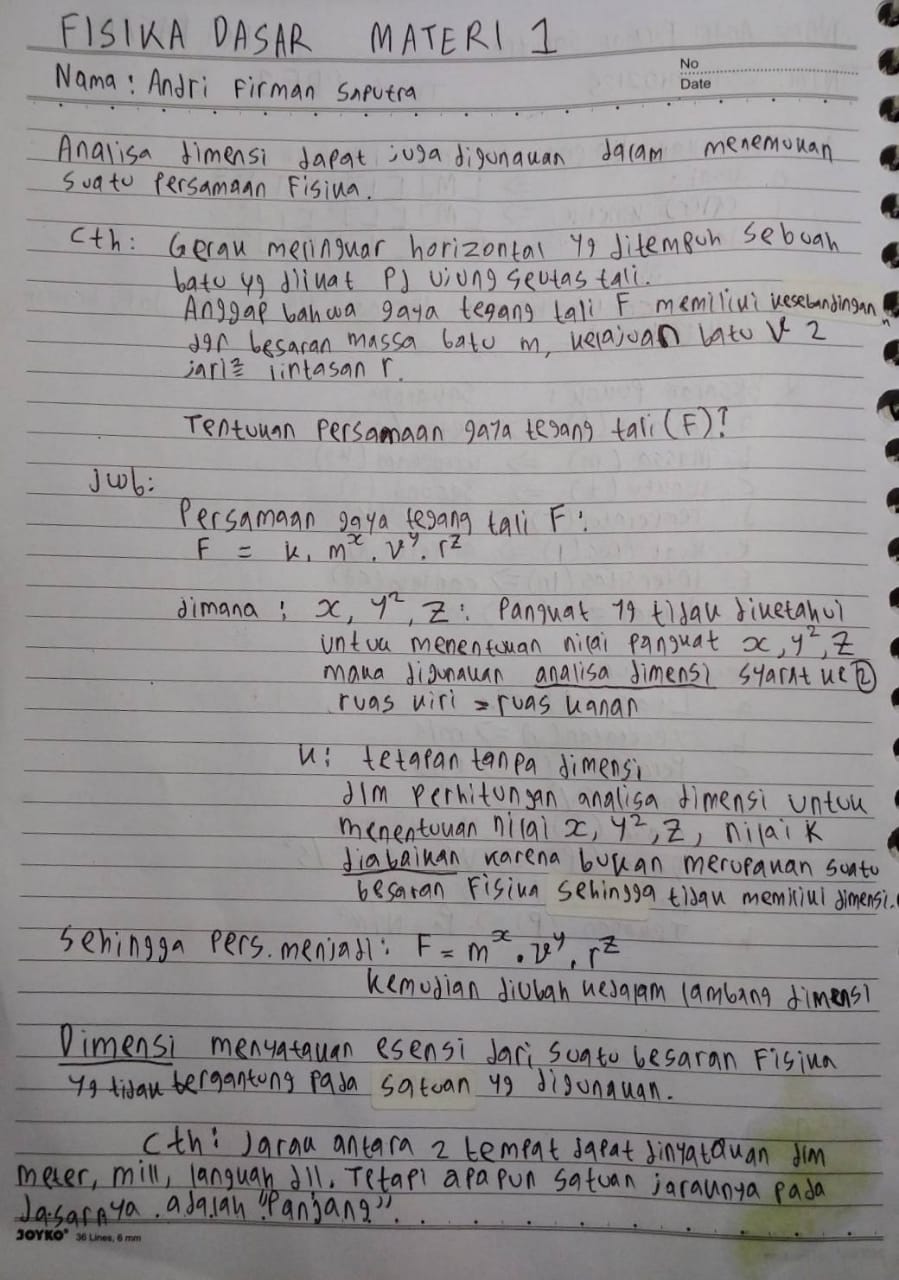 FISIKA DASAR MATERI 1
No
Nama : Andri Firman Saputra
Date
Analisa dimensi dapat juga digunakan dalam menemukan
suatu Persamaan Fisika.
Cth: Gerak melingkar horizontal yg ditempuh sebuah
batu yg diikat pd ujung seutas tali.
Anggap bahwa gaya tegang tali F memiliki kesebandingan
dgn besaran massa batu m, kelajuan batu v 2
jari² lintasan r.
Tentukan Persamaan gaya tegang tali (F)?
Jwb:
Persamaan gaya tegang tali F :
F = k. m^x. v^y. r^z
dimana : x, y², z : Pangkat yg tidak diketahui
untuk menentukan nilai pangkat x, y², z
maka digunakan analisa dimensi syarat ke ②
ruas kiri = ruas kanan
k : tetapan tanpa dimensi
dlm perhitungan analisa dimensi untuk
menentukan nilai x, y², z, nilai k
diabaikan karena bukan merupakan suatu
besaran Fisika sehingga tidak memiliki dimensi.
Sehingga Pers. menjadi : F = m^x . v^y . r^z
Kemudian diubah kedalam lambang dimensi
Dimensi menyatakan esensi dari suatu besaran Fisika
yg tidak bergantung pada satuan yg digunakan.
Cth : Jarak antara 2 tempat dapat dinyatakan dlm
meter, mill, langkah dll. Tetapi apapun satuan jaraknya pada
dasarnya adalah "Panjang".
JOYKO® 36 Lines, 6 mm